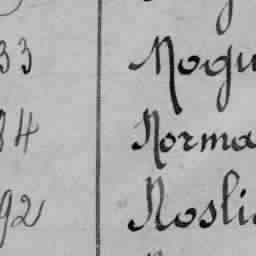 33 Nogu
84 Norma
92 Nosli